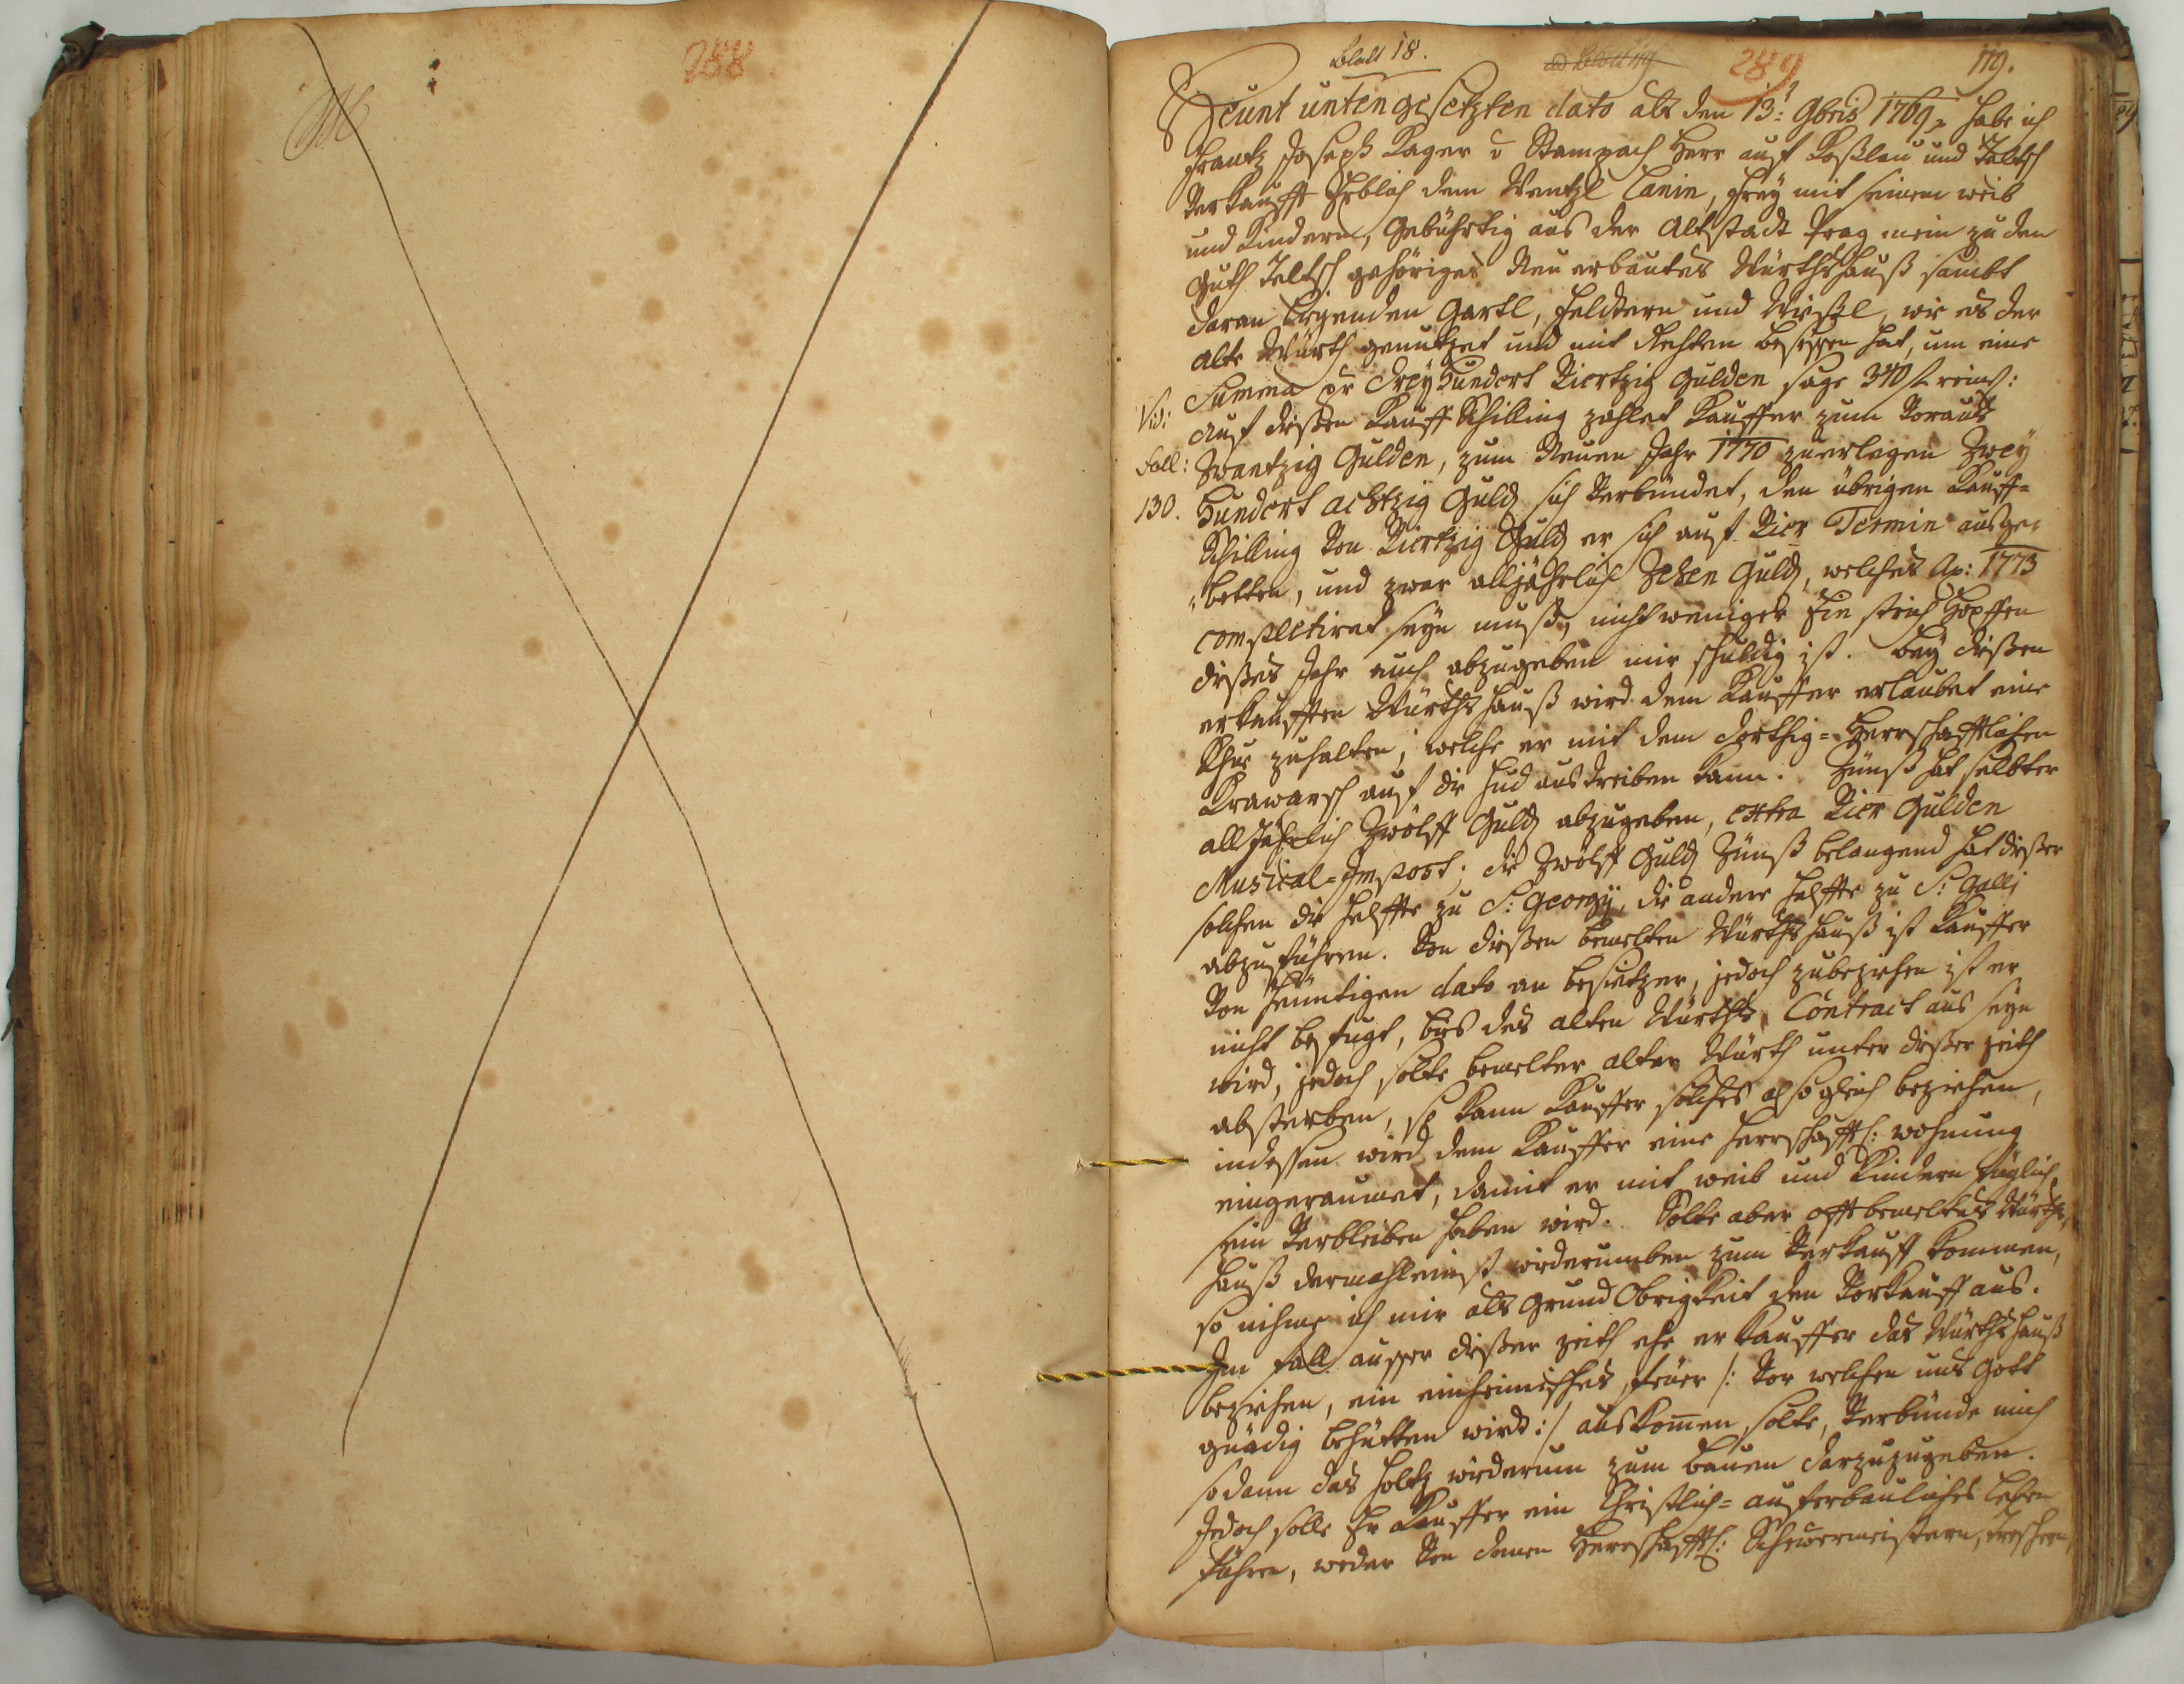 288
Blatt 18.
289
119.
Heunt untengesetzten dato als den 13: 9bris 1769 habe ich
Frantz Joseph Kager v Stampach Herr auf Koßlau und Teltsch
Verkaufft Erblich dem Wentzl Canin, Frey mit seinem weib
und Kindern, Gebührtig aus der Altstadt Prag mein zu den
Guth Teltsch gehöriges Neu erbautes Würthshauß sambt
daran Ligenden Gartl, Feldtern und Wießl, wie es der
alte Würth genutzet und mit Rechten besessen hat, um eine
Summa pr Dreyhundert Viertzig Gulden sage 340 f reinis:
Vid:
auf dießen Kauff Schilling zahlet Kauffer zum Voraus
Foll:
Zwantzig Gulden, zum Neuen Jahr 1770 zuerlegen Zwey
130.
Hundert achtzig Guld sich Verbündet, den übrigen Kauff=
Schilling Von Viertzig Guld er sich auf Vier Termin ausge=
betten, und zwar alljährlich Zehen Guld, welches Ao: 1773
completiret seyn muß, nicht weniger Ein strich Hopffen
dießes Jahr auch abzugeben mir schuldig ist. Bey dießen
erkaufften Würthshauß wird dem Kauffer erlaubet eine
Khue zuhalten, welche er mit dem dorthig=Herrschafftlichen
Krawarsch auf die Hud austreiben kann. Zünß hat selbter
all Jährlich Zwölff Guld abzugeben, extra Vier Gulden
Musical=Impost; die Zwölff Guld Zünß belangend hat dießer
solchen die Helffte zu S: Georgij, die andere Helffte zu S: Galli
abzuführen. Von dießen bemelten Würthshauß ist Kauffer
Von heuntigen dato an besitzer, jedoch zubeziehen ist er
nicht befugt, bies des alten Würths Contract aus seyn
wird, jedoch solte bemelter alter Würth unter dießer zeith
absterben, so kann Kauffer solches also gleich beziehen,
indessen wird dem Kauffer eine Herrschafftl: wohnung
eingeraumet, damit er mit weib und Kindern füglich
sein Verbleiben haben wird. Solte aber offt bemeltes Würths
hauß dermahleinst wiederumben zum Verkauff kommen,
so nihme ich mir als Grund Obrigkeit den Vorkauff aus.
Im fall ausser dießer zeith ehe er Kauffer das Würthshauß
beziehen, ein einheimisches feüer /: Vor welchen uns Gott
gnädig behütten wird :/ auskomen solte, Verbünde mich
sodann das Holtz wiederum zum bauen darzuzugeben.
Jedoch solle Er Kauffer ein Christlich= auferbauliches Leben
führen, weder Von denen Herrschafftl: Scheuermeistern, Treschern,